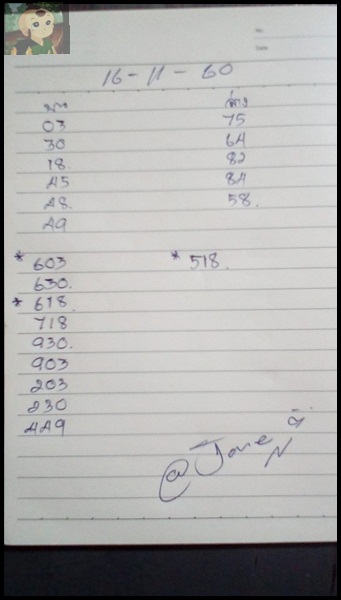 No.
Date
16-11-60
บน ล่าง
03 75
30 64
18. 82
45 84
48. 58.
49
* 603 * 518.
630.
* 618
718
930.
903
203
230
449
@Jane